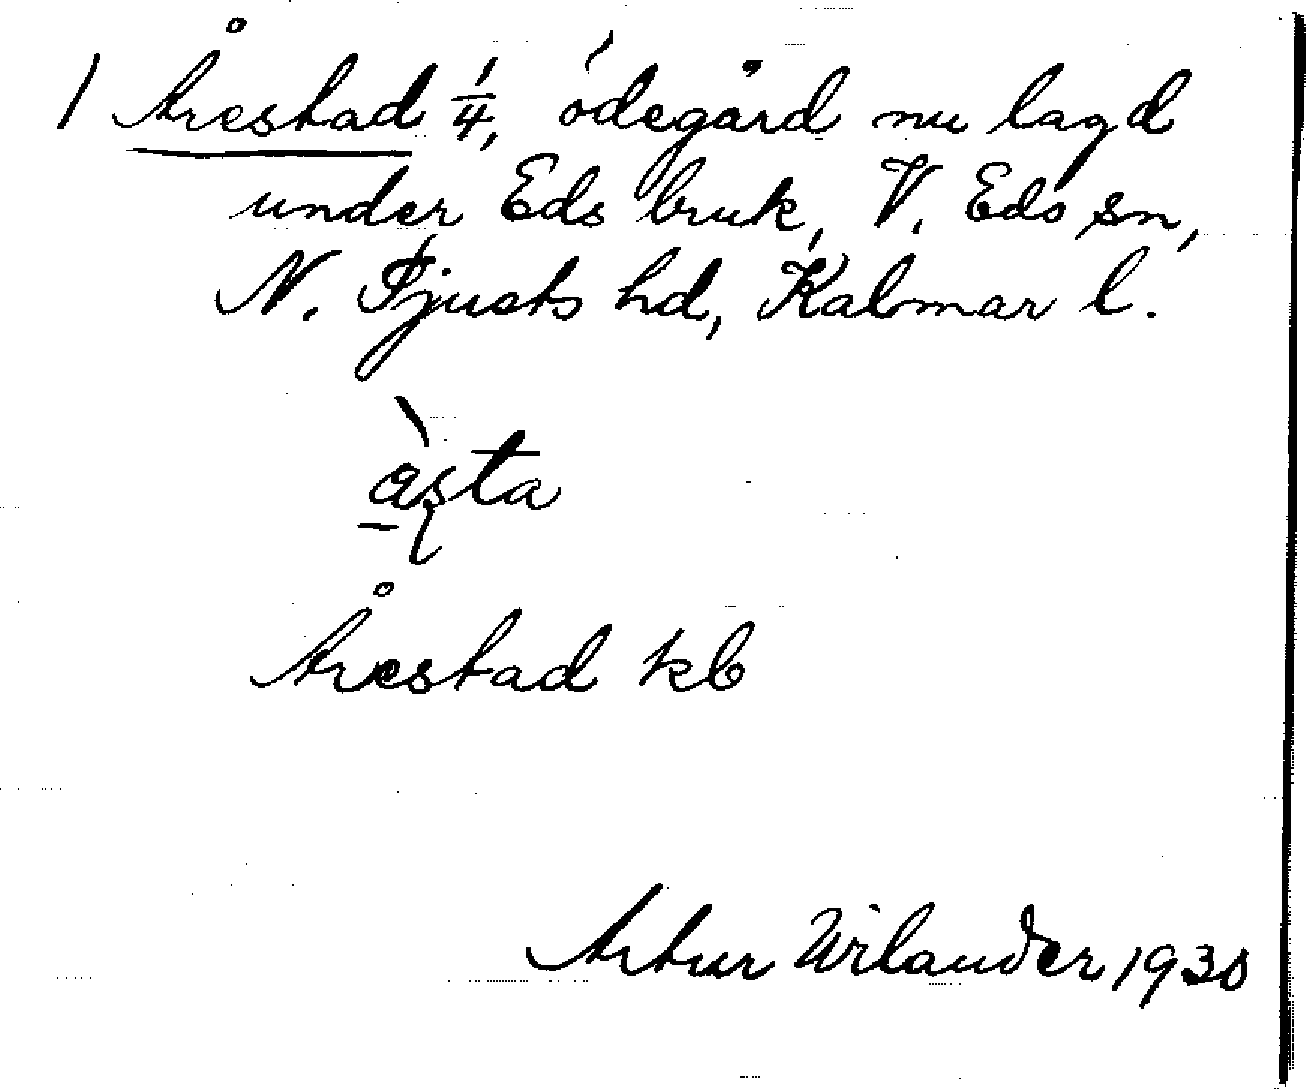 1 Årestad 1/4, ödegård nu lagd
under Eds bruk, V. Eds sn,
N. Tjusts hd, Kalmar l.
àsta
Årestad kb
Artur Wilander 1930